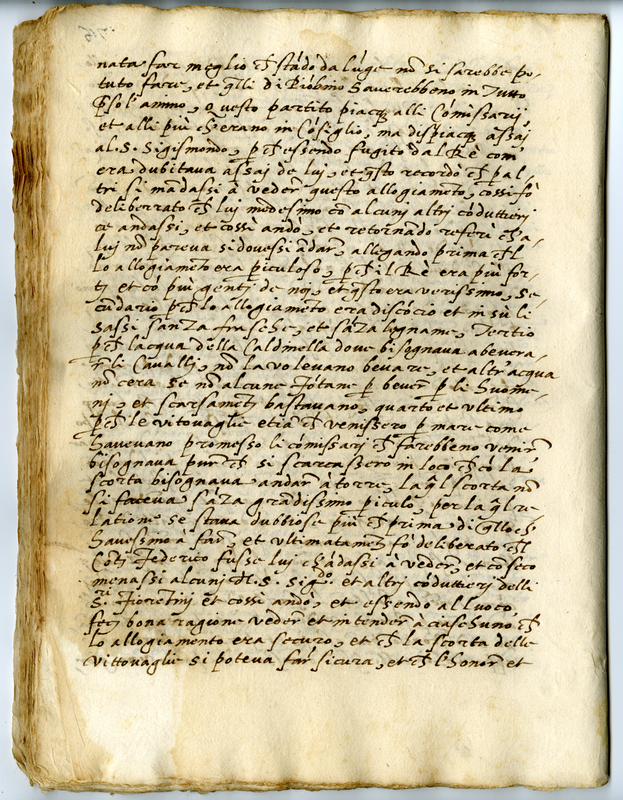 nata far meglio ch̃ stãdo da lũge nõ si sarebbe po-
tuto fare, et q̃lli di Piõbino haverebbeno in tutto
p̱so l'ammo, questo partito piacq̃ alli Cõmissarij,
et alli più ch'erano in Cõsiglio, ma dispiacq̃ assaj
al .S. Sigismondo, p̱ch̃ essendo fugito dal Rè com'
era dubitava assaj de luj, et q̃sto recordò ch̃ p̱ al-
tri si mãdassi à veder questo allogiamẽto, cossi fò
deliberrato ch̃ luj medesimo cõ alcunj altri cõduttieri
ce andassi, et cossi andò, et retornãdo referì ch'a-
luj nõ pareva si dovessi ãdar, allegando prima ch̃l
lo allogiamẽto era p̱iculoso, p̱ch̃ il Rè era più for-
tj et cõ più gentj de noj, et q̃sto era verissimo, Se-
cũdario p̱ch̃ lo allogiamẽto era discõcio et in sù li
sassi sanza frasche, et sãza lygname, Tertio
p̱ch̃ l'acqua della Caldinella dove bisognava abevera-
r̃ li Cavallj, nõ la volevano bevare, et altr'acqua
nõ c'era se nõ alcune fõtane p̱ bever p̱ li huome-
nj, et scarsamẽtj bastavano, quarto et ultimo
p̱ch̃ le vitovaglie etiã ch̃ venissero p̱ mare come
havevano promesso li cõmissarij ch̃ farebbeno venir̃
bisognava pur̃ ch̃ si scarcassero in loco ch̃ cõ la
scorta bisognava andar̃ à torre, la q̃l scorta nõ
si faceva sãza grãdissimo p̱iculo, per la q̃l re-
latione se stava dubbiose più ch̃ prima di q̃llo ch̃
havessimo à far̃, et ultimatamẽtj fò deliberato ch̃l
Cõtj Federico fusse luj ch'ãdassi à veder̃, et cõ seco
menassi alcunj .S. Sigdo. et altri cõduttierj delli
S.ri Fiorẽtinj et cossi andò, et essendo al luoco,
fecj bona ragione veder̃ et intẽder̃ à ciaschuno ch̃
lo allogiamento era securo, et ch̃ la scorta delle
vittovaglie si poteva far sicura, et ch̃ l'honor̃ et